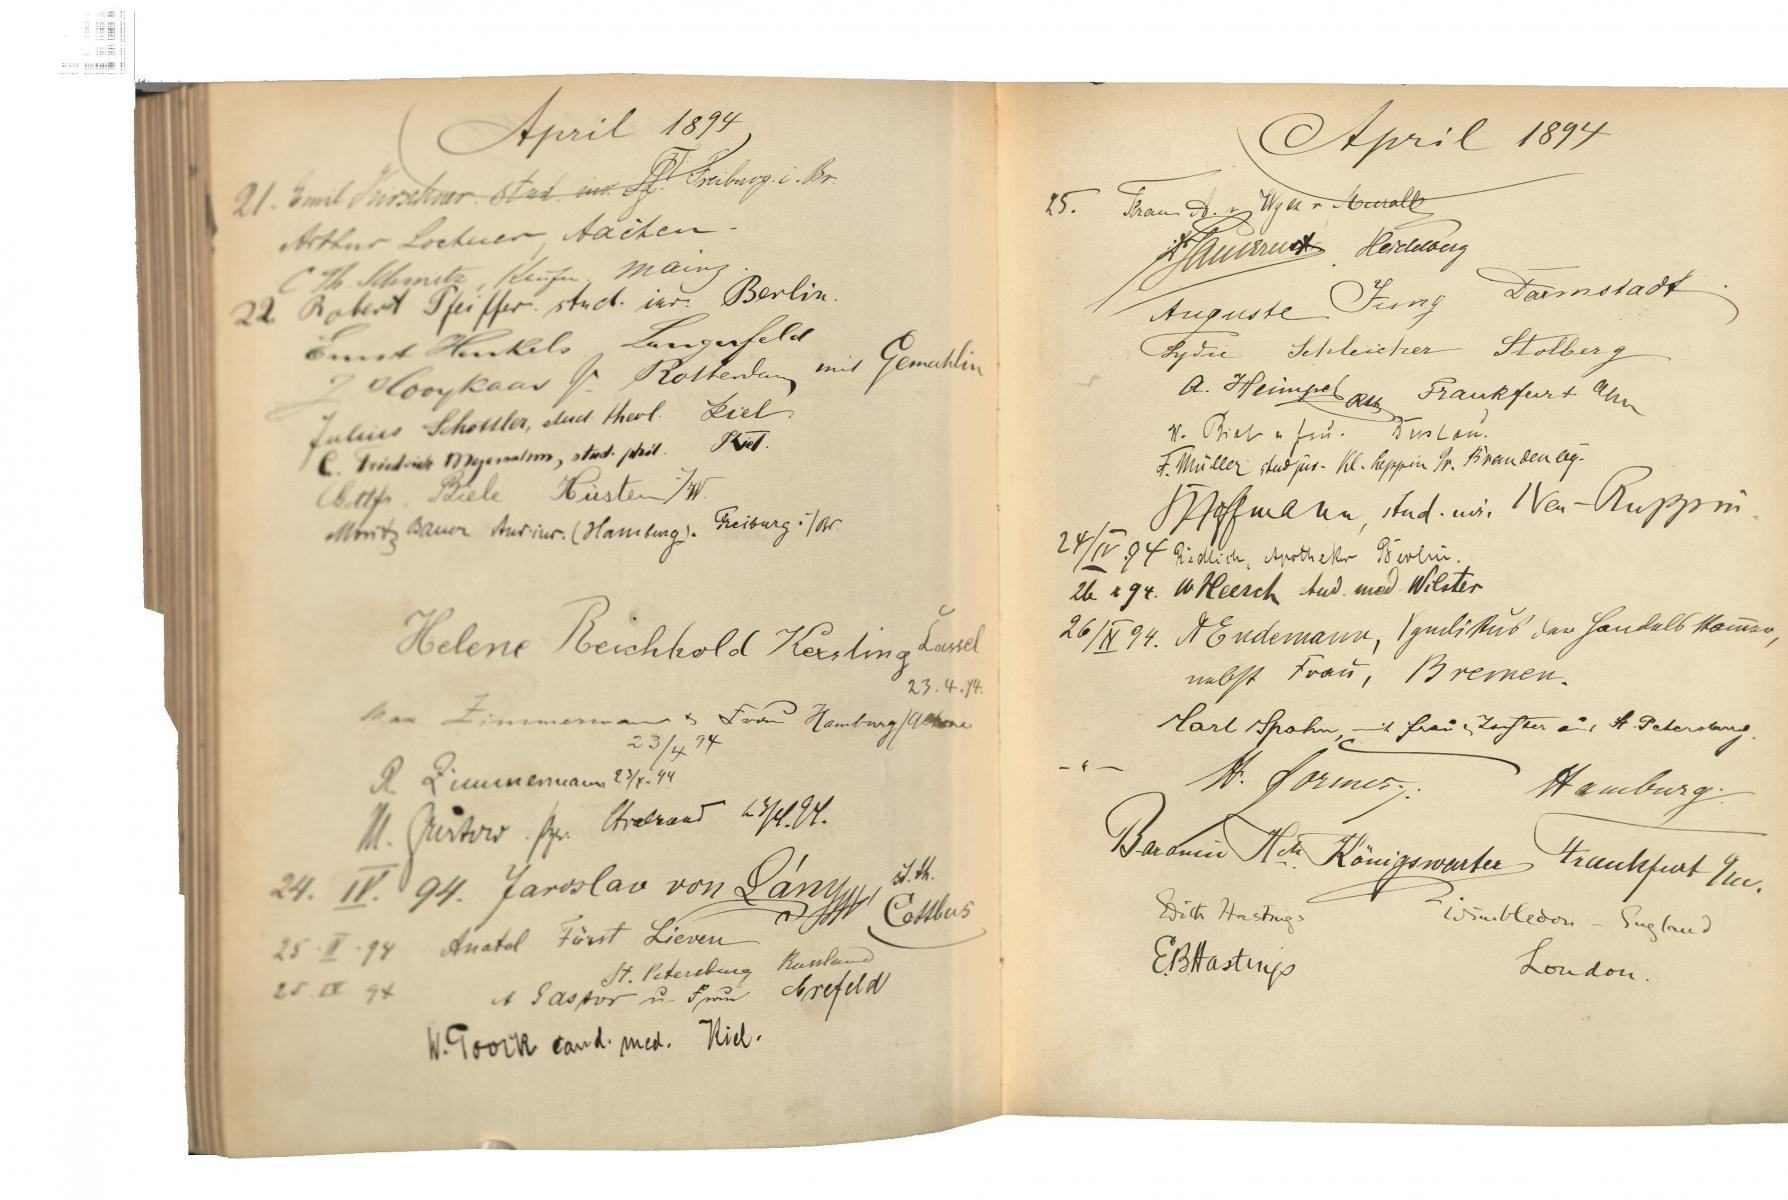 April 1894
21. Emil stud. iur. Freiburg i. Br.
Arthur Lochner, Aachen
C Th. Schmitz, Kaufm. Mainz.
22. Robert Pfeiffer stud. iur. Berlin.
Ernst Henkels Langerfeld
J Hooykaas Jr. Rotterdam mit Gemahlin
Julius Schottler, stud. theol. Kiel.
C. Friedrich stud. phil. Kiel.
Biele Hüsten i/W.
Moritz Bauer stud. iur. (Hamburg). Freiburg i/Br
Helene Reichhold Kersting Cassel
23.4.94.
Zimmermann & Frau Hamburg/
23/4 94
R. Zimmermann 23/4.94
M. Stralsund 23/4.94.
24. IV. 94. Jaroslav von Lány st. th.
Cottbus
25. IV. 94 Anatol Fürst Lieven
St. Petersburg Russland
25 IV 94 A Pastor u. Frau Crefeld
W. cand. med. Kiel.
April 1894
25. Frau A. v Wyss v Muralt
Heidelberg
Auguste Jung Darmstadt
Lydie Schleicher Stolberg
A. Heimpel Frankfurt a/m
W. u frau.
F. Müller stud jur. Kl. Brandenbg.
Hoffmann, stud. iur. Neu-Ruppin
24/IV 94 Apotheker Berlin.
26 4 94. W Heesch stud. med. Wilster
26/IV 94. A Endemann, Syndikus der Handelskammer,
nebst Frau, Bremen.
Karl Spohn, mit Frau & Tochter aus St. Petersburg.
-"- Hamburg.
Baronin Königswarter Frankfurt a/m.
Edith Hastings Wimbledon - England
E.B Hastings London.